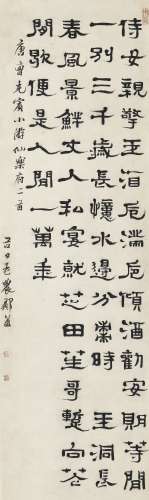 侍女親擎玉酒卮滿卮傾酒勸安期等閒
一別三千歲長憶水邊分棗時　玉洞長
春風景鮮丈人私宴就芝田笙哥蹔向花
間歇便是人間一萬年
唐曹堯賓小游仙樂府二首
谷口農鄭簠